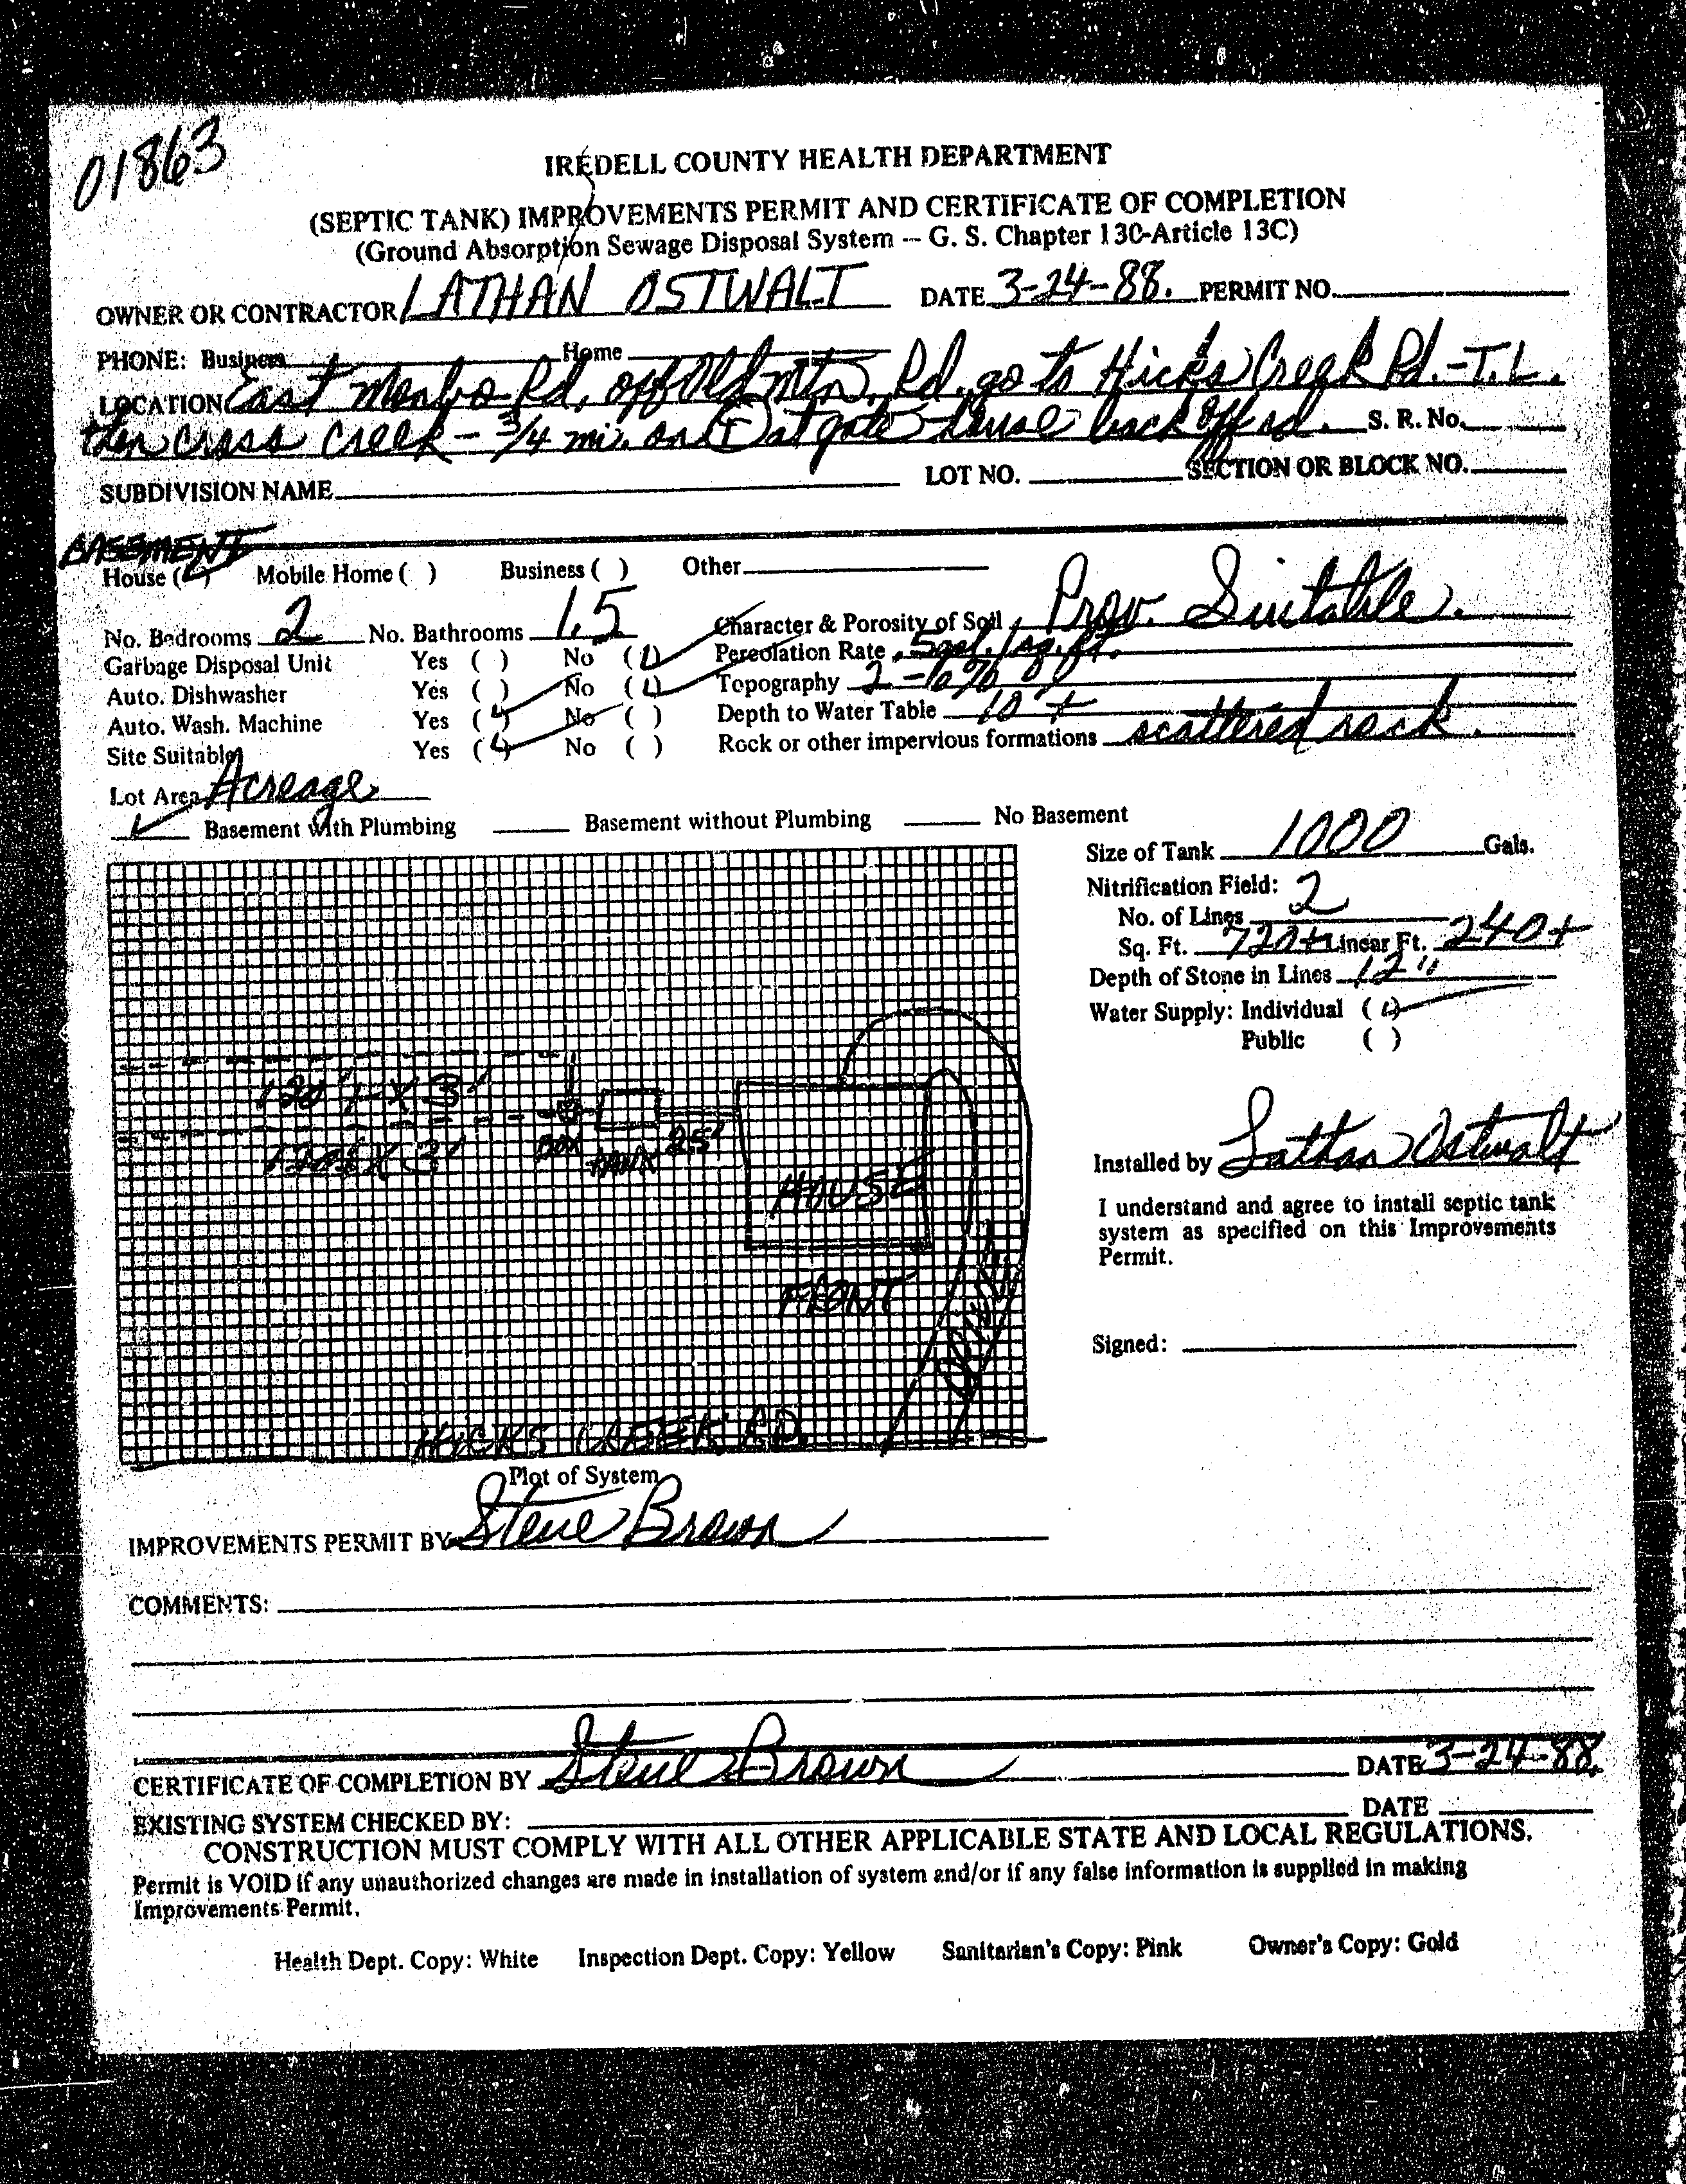 01863
IREDELL COUNTY HEALTH DEPARTMENT
(SEPTIC TANK) IMPROVEMENTS PERMIT AND CERTIFICATE OF COMPLETION
(Ground Absorption Sewage Disposal System -- G. S. Chapter 130-Article 13C)
OWNER OR CONTRACTOR LATHAN OSTWALT DATE 3-24-88. PERMIT NO.
PHONE: Business Home
LOCATION East Monbo Rd, off Old Mtn. Rd. go to Hicks Creek Rd.-T.L.
then cross creek - 3/4 mi. on L at gate - house back off rd. S. R. No.
SUBDIVISION NAME LOT NO. SECTION OR BLOCK NO.
BASEMENT
House ( ) Mobile Home ( ) Business ( ) Other
No. Bedrooms 2 No. Bathrooms 1.5 Character & Porosity of Soil Prov. Suitable.
Garbage Disposal Unit Yes ( ) No ( ) Percolation Rate .5 gal./sq.ft.
Auto. Dishwasher Yes ( ) No ( ) Topography 2-10%
Auto. Wash. Machine Yes ( ) No ( ) Depth to Water Table 10'+
Site Suitable Yes ( ) No ( ) Rock or other impervious formations scattered rock.
Lot Area Acreage
Basement with Plumbing Basement without Plumbing No Basement
Size of Tank 1000 Gals.
Nitrification Field:
No. of Lines 2
Sq. Ft. 720+ Linear Ft. 240+
Depth of Stone in Lines 12"
Water Supply: Individual ( )
Public ( )
120' X 3'
120' X 3'
BOX
TANK
25'
HOUSE
FRONT
DRIVE
HICKS CREEK RD.
Installed by Lathan Ostwalt
I understand and agree to install septic tank
system as specified on this Improvements
Permit.
Signed:
Plot of System
IMPROVEMENTS PERMIT BY Steve Brown
COMMENTS:
CERTIFICATE OF COMPLETION BY Steve Brown DATE 3-24-88.
EXISTING SYSTEM CHECKED BY: DATE
CONSTRUCTION MUST COMPLY WITH ALL OTHER APPLICABLE STATE AND LOCAL REGULATIONS.
Permit is VOID if any unauthorized changes are made in installation of system and/or if any false information is supplied in making
Improvements Permit.
Health Dept. Copy: White Inspection Dept. Copy: Yellow Sanitarian's Copy: Pink Owner's Copy: Gold